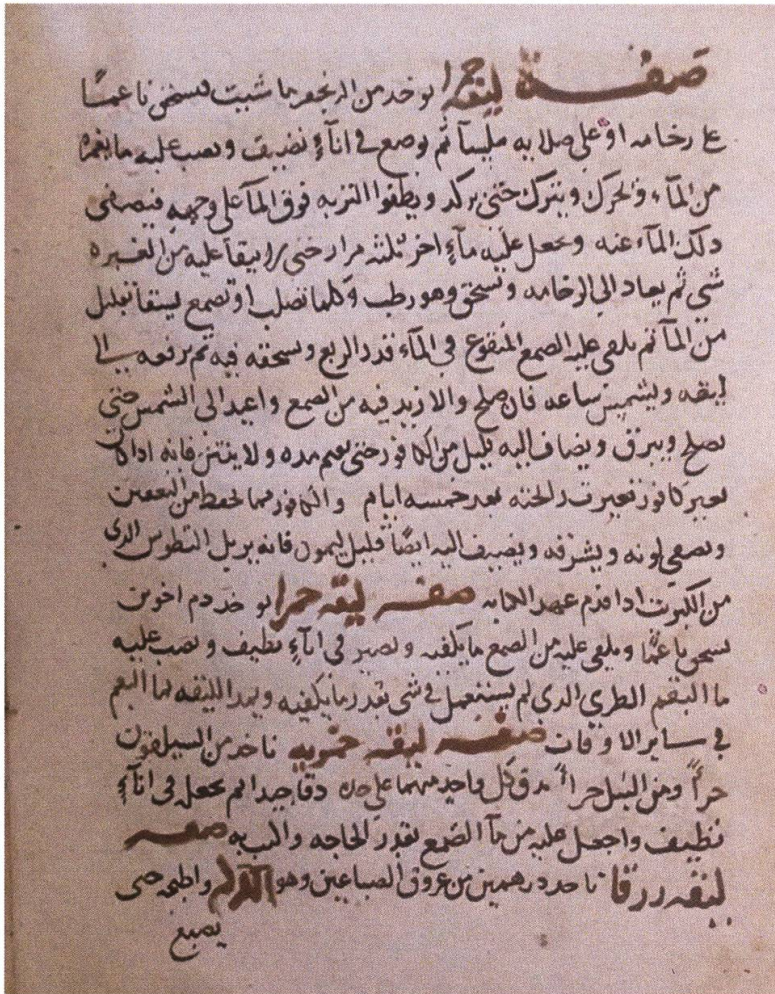 صفة ليقه حمرا يوخد من الزنجفر ما شيت يسحق ناعمًا
على رخامه او على صلايه مليًا ثم يوضع في انآءٍ نضيف ويصب عليه ما يغمره
من المآء ويحرك ويترك حتى يركد ويطفوا التربه فوق المآ على وجهه فيصفى
دلك المآء عنه ويجعل عليه مآءٍ اخر ثلثه مرار حتى لا يبقا عليه من الغبره
شي ثم يعاد الى الرخامه ويسحق وهو رطب وكلما تصلب او تصمع يسقا بقليل
من المآ ثم يلقى عليه الصمغ المنقوع في المآء قدر الربع ويسحقه فيه ثم يرفعه الى
ليقه ويشمس ساعه فان صلح والا ازيد فيه من الصمغ واعيد الى الشمس حتى
يصلح ويبرق ويضاف اليه قليل من الكافور حتى يقيم مده ولا ينتن فانه ادا كان
بغير كافور تغيرت رالحته بعد خمسه ايام والكافور مما يحفظ من التعفين
ويصفي لونه ويشرفه ويضيف اليه ايضًا قليل ليمون فانه يزيل التطوس الدي
من الكبريت ادا قدم عهد الكتابه صفه ليقه حمرا يوخد دم اخوين
يسحق ناعمًا ويلقى عليه من الصمغ ما يكفيه ويصير في انآءٍ نظيف ويصب عليه
ما البقم الطري الدي لم يستعمل في شي بقدر ما يكفيه ويمد الليقه بما البقم
في ساير الاوقات صفه ليقه خمريه تاخد من السيلقون
جزأً ومن النيل جزأً يدق كل واحد منهما على حده دقا جيدا ثم يجعل في انآءٍ
نظيف واجعل عليه من مآ الصمغ بقدر الحاجه واكتب به صفه
ليقه زرقا تاخد درهمين من عروق الصباغين وهو الكركم واطبخه حتى
يصبغ